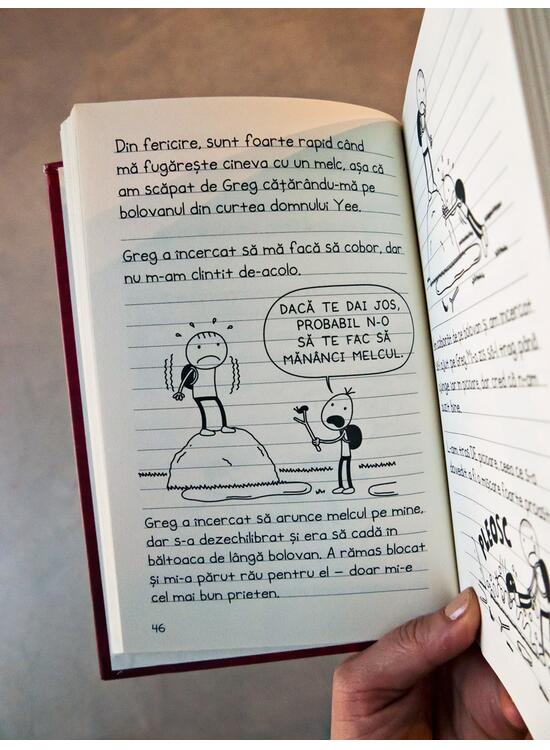 Din fericire, sunt foarte rapid când
mă fugărește cineva cu un melc, așa că
am scăpat de Greg cățărându-mă pe
bolovanul din curtea domnului Yee.
Greg a încercat să mă facă să cobor, dar
nu m-am clintit de-acolo.
DACĂ TE DAI JOS,
PROBABIL N-O
SĂ TE FAC SĂ
MĂNÂNCI MELCUL.
Greg a încercat să arunce melcul pe mine,
dar s-a dezechilibrat și era să cadă în
băltoaca de lângă bolovan. A rămas blocat
și mi-a părut rău pentru el – doar mi-e
cel mai bun prieten.
46
de pe bolovan și am încercat
pe Greg. M-a
picioare, dar cred că n-am
bine.
am tras DE picioare, ceea ce s-a
dovedit a fi o mișcare foarte
PLEOSC